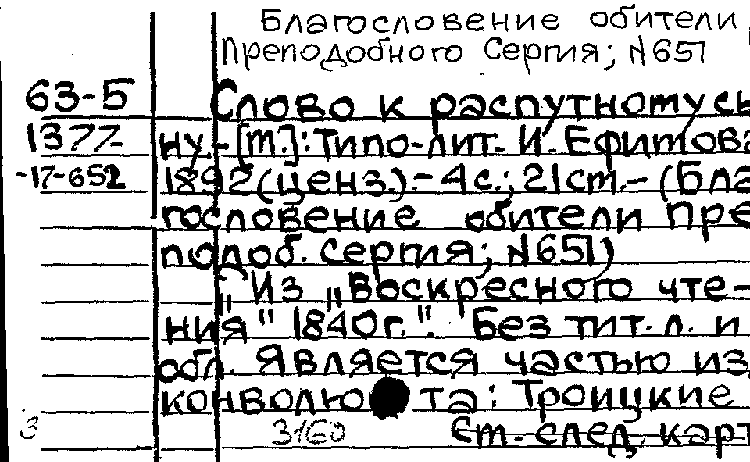 Благословение обители
Преподобного Сергия; N651
63-5
1377-
-17-652
Слово к распутному сы
ну.-[М.]: Типо-лит. И. Ефимова
1892 (ценз.).- 4с.; 21см.- (Бла
гословение обители Пре
подоб. Сергия; N651)
"Из „Воскресного чте-
ния" 1840г.". Без тит. л. и
обл. Является частью из
конволюта: Троицкие
3160
См. след. карт
3